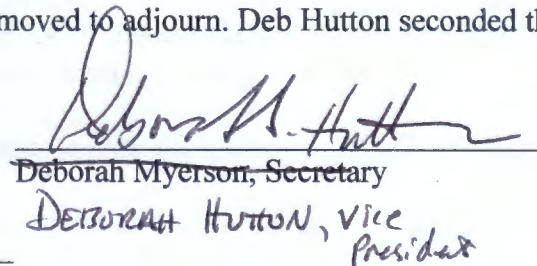 moved to adjourn. Deb Hutton seconded th
Deborah H. Hutton
Deborah Myerson, Secretary
DEBORAH HUTTON, Vice
President